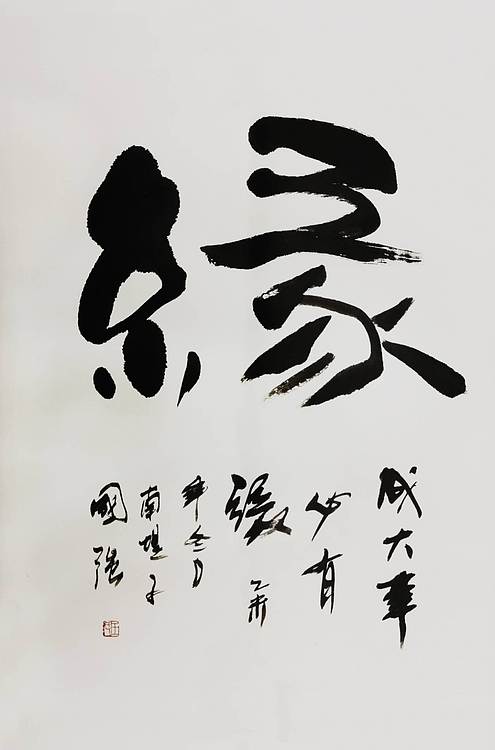 緣
成大事
必有
緣 乙未
年冬月
南
國強